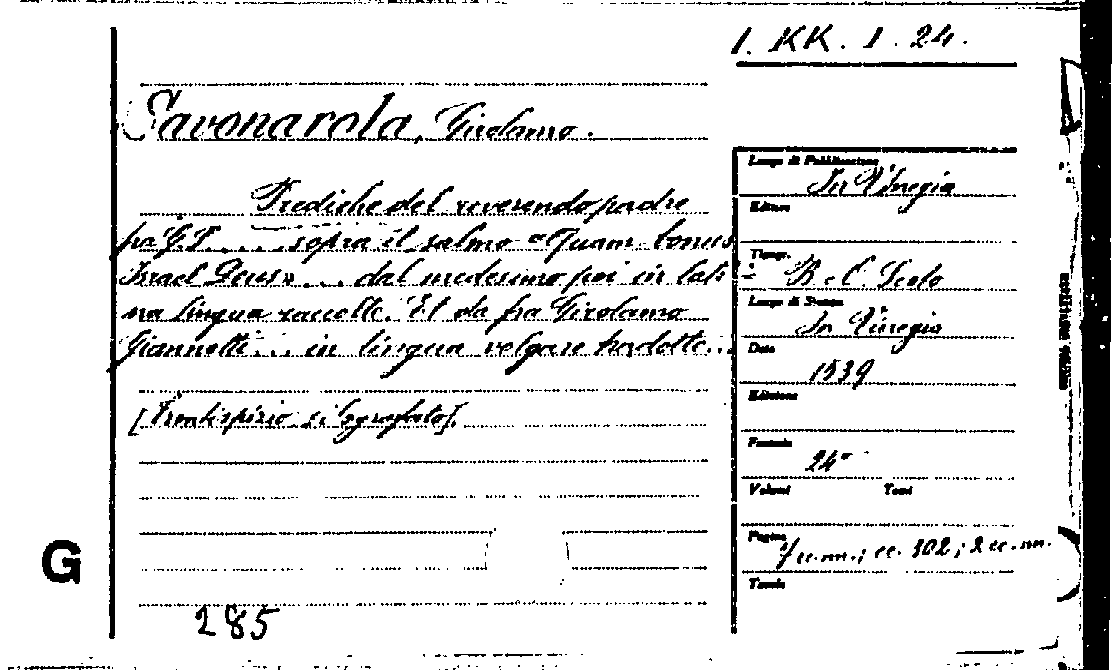 1. KK. 1. 24.
Savonarola, Girolamo.
Prediche del reverendo padre
fra G. S. ... sopra il salmo «Quam bonus
Israel Deus» ... dal medesimo poi in lati-
na lingua raccolte. Et da fra Girolamo
Giannotti ... in lingua volgare tradotte...
[Frontispizio silografato].
Luogo di Pubblicazione
In Vinegia
Editore
Tipogr.
B. e O. Scoto
Luogo di Stampa
In Vinegia
Data
1539
Edizione
Formato
24°
Volumi Tomi
Pagine
7 cc. nn.; cc. 302; 2 cc. nn.
Tavole
G
285